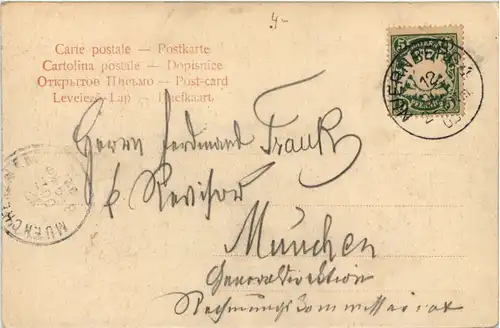 4-
Carte postale — Postkarte
Cartolina postale — Dopisnice
Открытое Письмо — Post-card
Levelező-Lap — Briefkaart
5
NUERNBERG
Herrn Ferdinand Frank
k. Revisor
München
Generaldirektion
Rechnungskommissariat
MUENCHEN